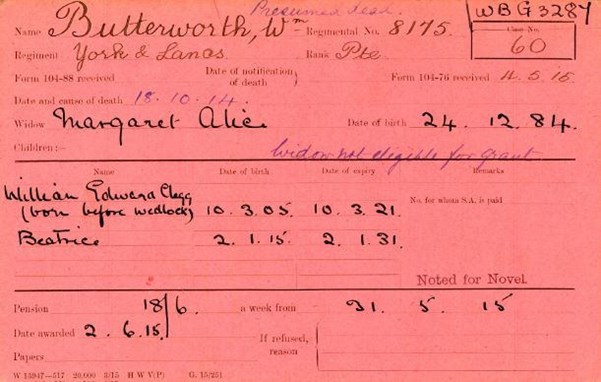 Presumed dead.
WBG3287
Name Butterworth, Wm Regimental No. 8175. Case No. 60
Regiment York & Lancs Rank Pte
Form 104-88 received Date of notification of death Form 104-76 received 11.5.15
Date and cause of death 18.10.14.
Widow Margaret Alice Date of birth 24. 12. 84.
Children:— Widow not eligible for grant
Name Date of birth Date of expiry Remarks
William Edward Clegg
(born before wedlock) 10.3.05. 10.3.21. No. for whom S.A. is paid
Beatrice 2.1.15. 2.1.31.
Noted for Novel.
Pension 18/6. a week from 31. 5. 15
Date awarded 2.6.15. If refused, reason
Papers
W 13947—517 20,000 3/15 H W V(P) G. 15/251